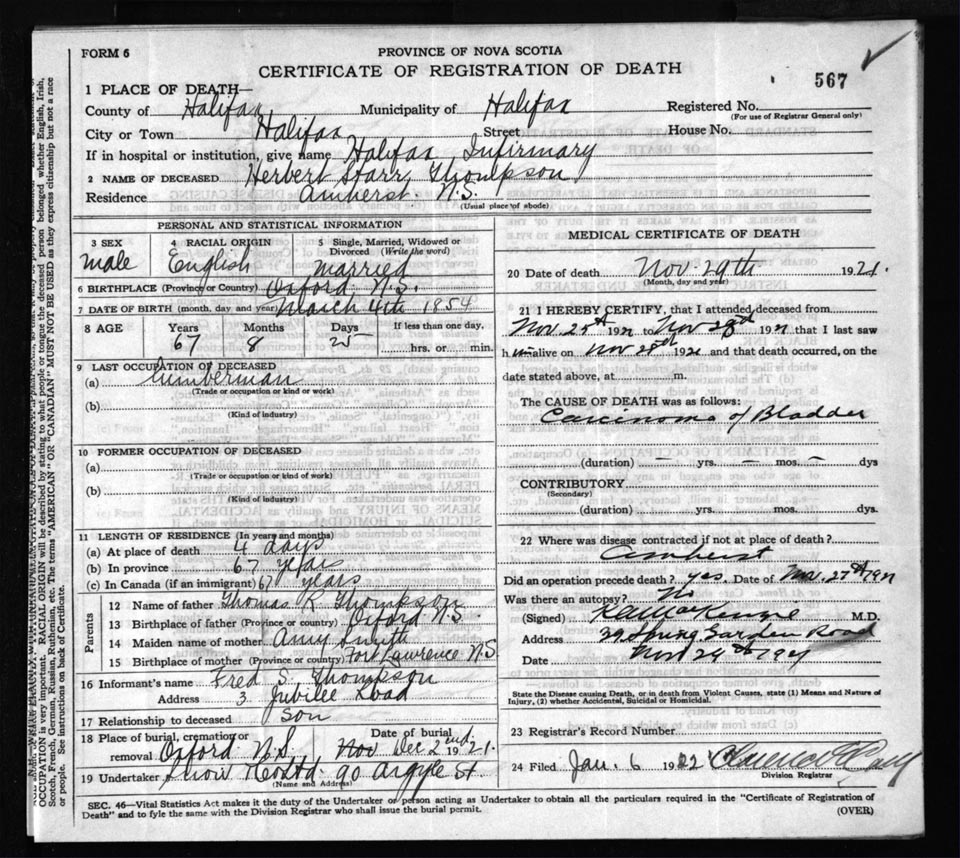 FORM 6
PROVINCE OF NOVA SCOTIA
CERTIFICATE OF REGISTRATION OF DEATH
567
1 PLACE OF DEATH—
County of Halifax Municipality of Halifax Registered No.
(For use of Registrar General only)
City or Town Halifax Street House No.
If in hospital or institution, give name Halifax Infirmary
2 NAME OF DECEASED Herbert Starr Thompson
Residence Amherst N.S.
(Usual place of abode)
PERSONAL AND STATISTICAL INFORMATION
3 SEX 4 RACIAL ORIGIN 5 Single, Married, Widowed or
Divorced (Write the word)
male English married
6 BIRTHPLACE (Province or Country) Oxford N.S.
7 DATE OF BIRTH (month, day and year) March 4th 1854
8 AGE Years Months Days If less than one day,
67 8 25 hrs. or min.
9 LAST OCCUPATION OF DECEASED
(a) Lumberman
(Trade or occupation or kind or work)
(b)
(Kind of industry)
10 FORMER OCCUPATION OF DECEASED
(a)
(Trade or occupation or kind of work)
(b)
(Kind of industry)
11 LENGTH OF RESIDENCE (In years and months)
(a) At place of death 4 days
(b) In province 67 years
(c) In Canada (if an immigrant) 67 years
Parents
12 Name of father Thomas R Thompson
13 Birthplace of father (Province or country) Oxford N.S.
14 Maiden name of mother Amy Smith
15 Birthplace of mother (Province or country) Fort Lawrence N.S
16 Informant's name Fred S. Thompson
Address 3 Jubilee Road
17 Relationship to deceased Son
18 Place of burial, cremation or Date of burial
removal Oxford N.S. Nov Dec 2nd 1921.
19 Undertaker Snow & Co Ltd. 90 Argyle St.
(Name and Address)
MEDICAL CERTIFICATE OF DEATH
20 Date of death Nov. 29th 1921.
(Month, day and year)
21 I HEREBY CERTIFY, that I attended deceased from
Nov. 25th 1921 to Nov 1921 that I last saw
him alive on Nov 1921 and that death occurred, on the
date stated above, at m.
The CAUSE OF DEATH was as follows:
Carcinoma of Bladder
(duration) — yrs. — mos. — dys
CONTRIBUTORY
(Secondary)
(duration) yrs. mos. dys
22 Where was disease contracted if not at place of death?
Amherst
Did an operation precede death? yes. Date of Nov. 27th 1921
Was there an autopsy? No
(Signed) MacKenzie M.D.
Address 29 Spring Garden Road
Date Nov 29th 1921
State the Disease causing Death, or in death from Violent Causes, state (1) Means and Nature of
Injury, (2) whether Accidental, Suicidal or Homicidal.
23 Registrar's Record Number
24 Filed Jan. 6 1922
Division Registrar
SEC. 46—Vital Statistics Act makes it the duty of the Undertaker or person acting as Undertaker to obtain all the particulars required in the "Certificate of Registration of
Death" and to fyle the same with the Division Registrar who shall issue the burial permit.
(OVER)
OCCUPATION is very important. RACIAL ORIGIN will be described by stating to what people or tongue the deceased person belonged whether English, Irish,
Scotch, French, German, Russian, Ruthenian, etc. The terms "AMERICAN" OR "CANADIAN" MUST NOT BE USED as they express citizenship but not a race
or people. See instructions on back of Certificate.